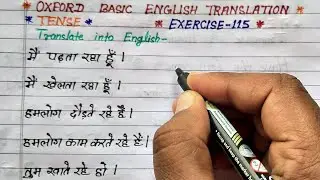 * OXFORD BASIC ENGLISH TRANSLATION
* TENSE * * EXERCISE-115
Translate into English-
मैं पढ़ता रहा हूँ।
मैं खेलता रहा हूँ।
हमलोग दौड़ते रहे हैं।
हमलोग काम करते रहे हैं।
तुम खाते रहे हो।